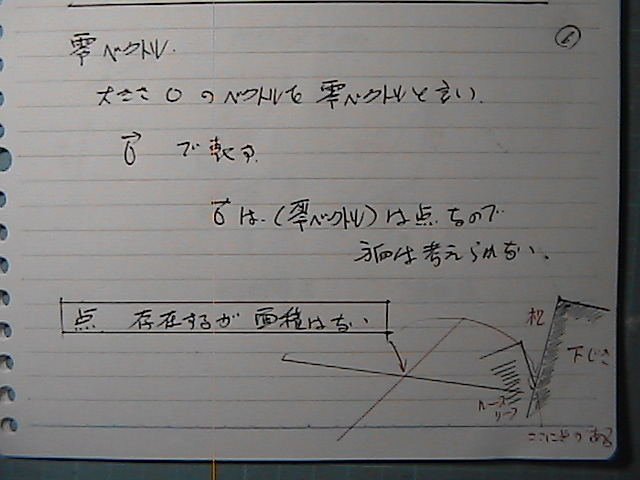 ⑥
零ベクトル.
大きさ 0 のベクトルを 零ベクトルと言い.
0 で表す.
0 は (零ベクトル) は点なので
方向は考えられない.
点 存在するが 面積はない
机
下じき
ルーズ
リーフ
ある